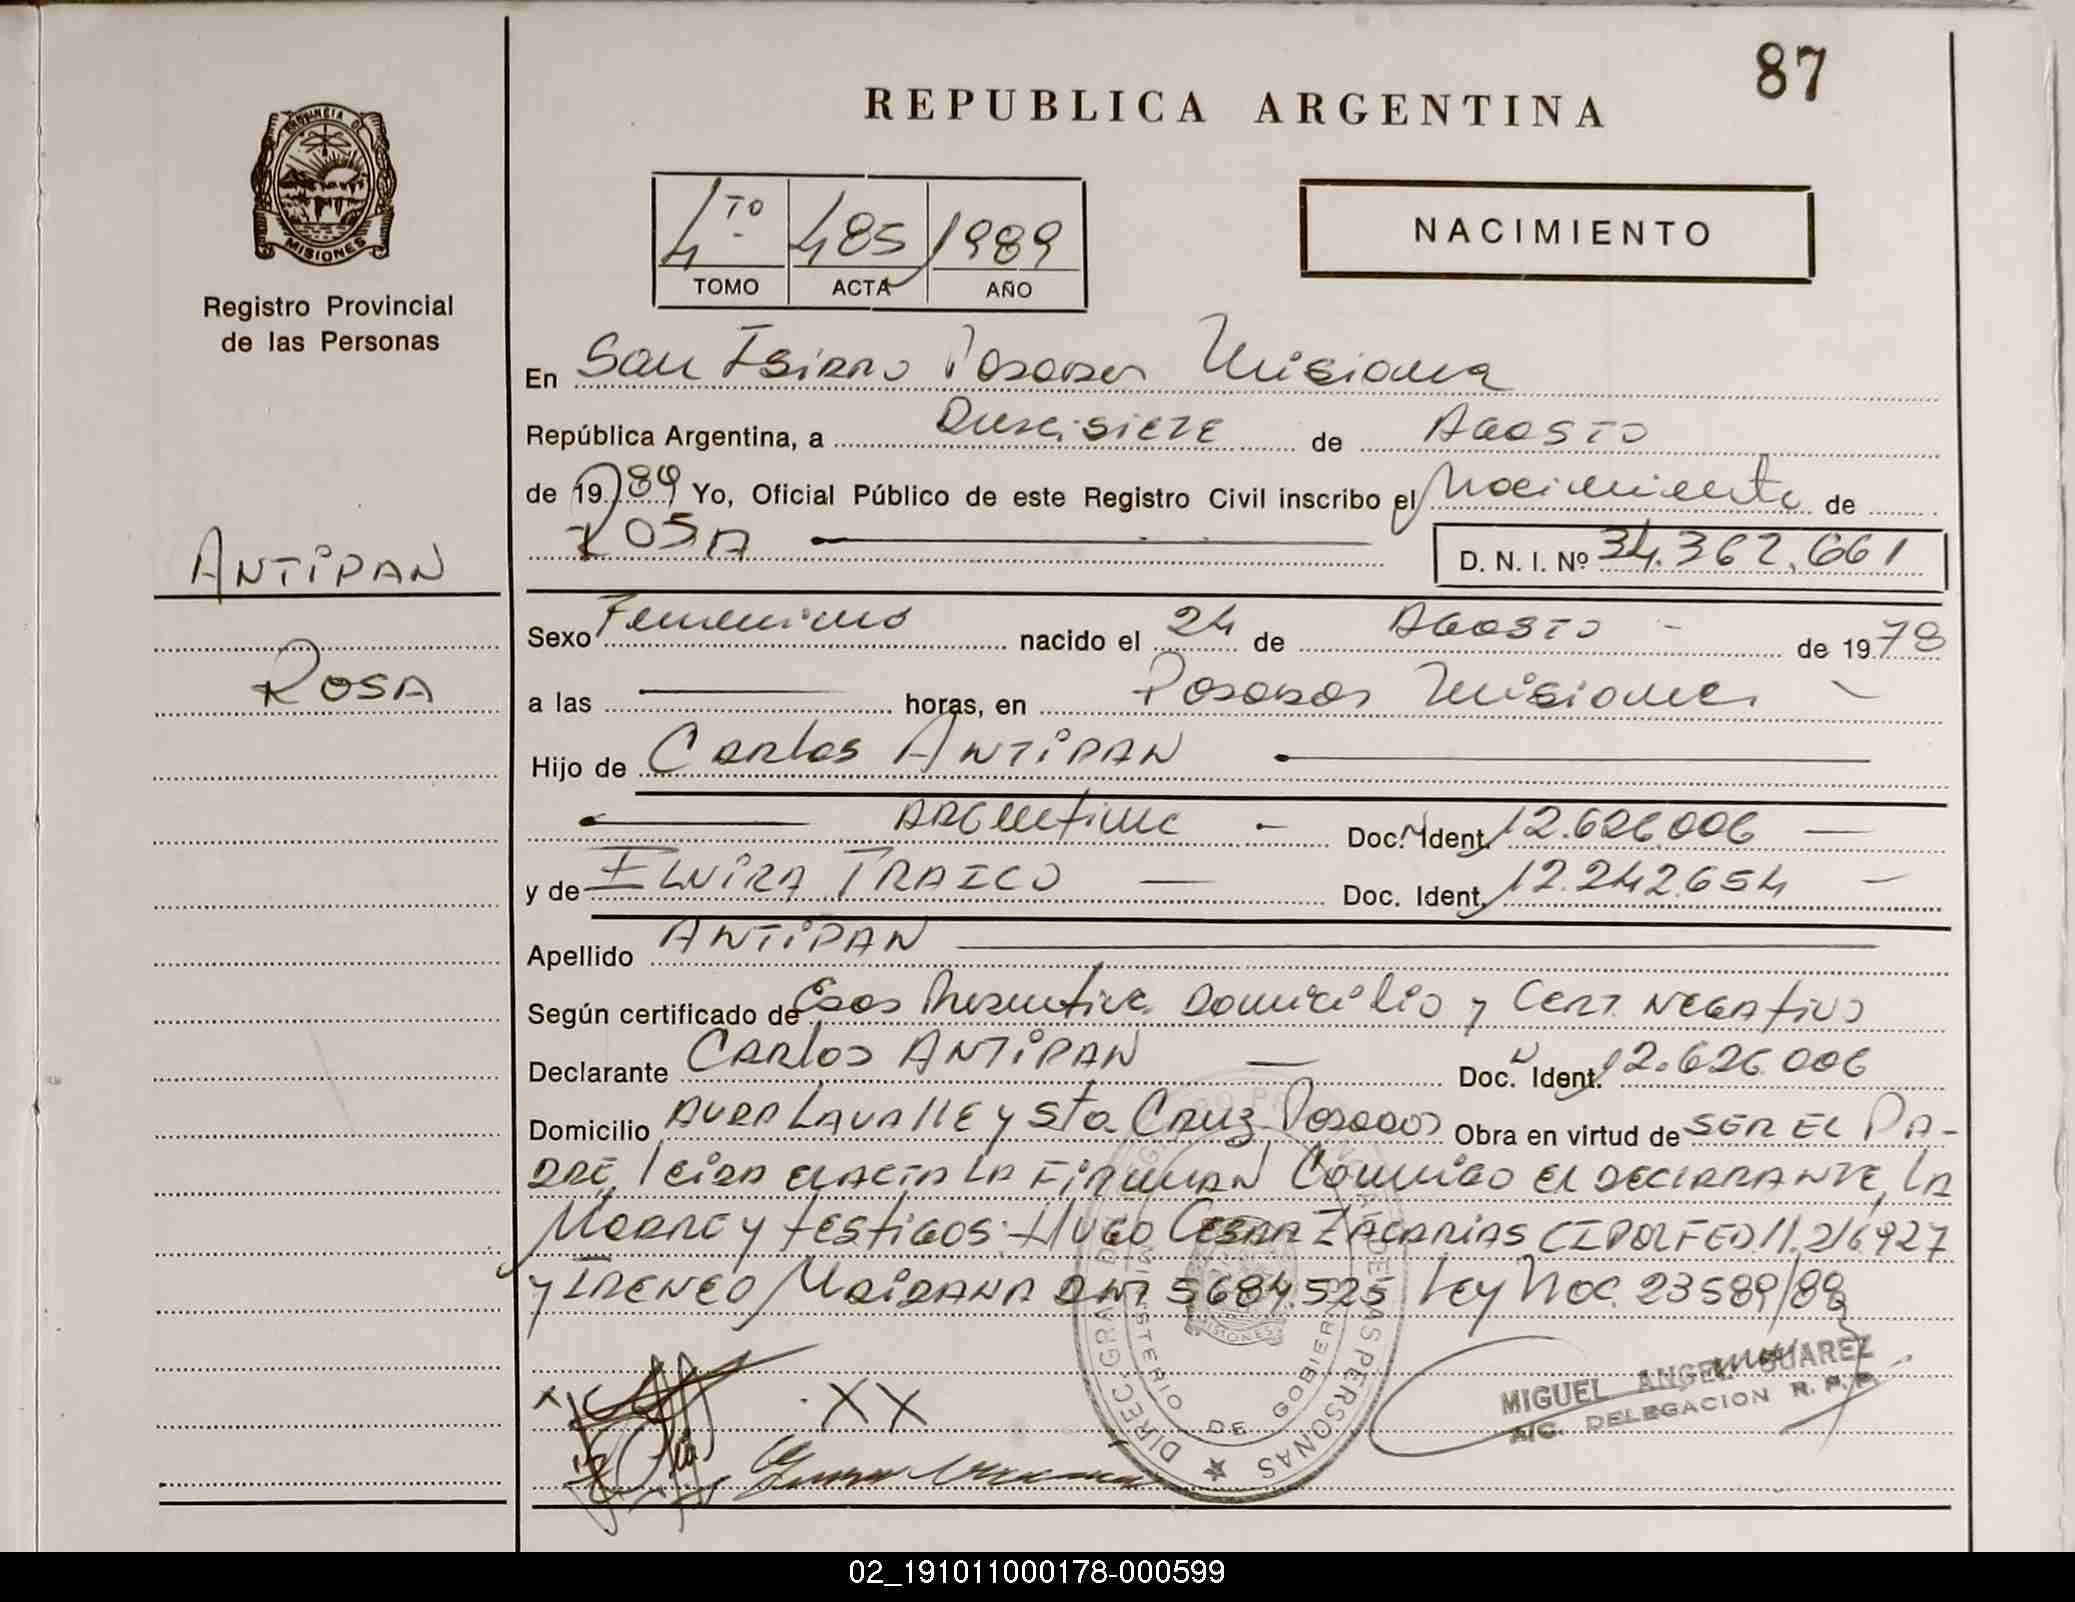 87
REPUBLICA ARGENTINA
PROVINCIA DE
MISIONES
Registro Provincial
de las Personas
4TO 485 1989
TOMO ACTA AÑO
NACIMIENTO
En San Isidro Posadas Misiones
República Argentina, a Diecisiete de Agosto
de 1989 Yo, Oficial Público de este Registro Civil inscribo el Nacimiento de
ROSA
D. N. I. Nº 34.362.661
ANTIPAN
ROSA
Sexo Femenino nacido el 24 de Agosto - de 1978
a las horas, en Posadas Misiones -
Hijo de Carlos ANTIPAN
ARGentino - Doc. Ident. 12.626.006
y de ELVIRA TRAICO Doc. Ident. 12.242.654
Apellido ANTIPAN
Según certificado de Edad Presuntiva Domicilio y CERT. NEGAtivo
Declarante CARlos ANTIPAN Doc. Ident. 12.626.006
Domicilio AVDA LAVAllE y Sta CRUZ Posadas Obra en virtud de SER EL PA-
DRE, leida el ACTA LA FIRMAN Conmigo el DECLARANTE, LA
MADRE y testigos: HUGO CESAR ZACARIAS CI POL FED. 11.216927
y IRENEO MAIDANA DNI 5684.525 Ley Nac. 23589/88
XX
DIREC. GRAL. DEL REGISTRO PROVINCIAL DE LAS PERSONAS
MINISTERIO DE GOBIERNO
MISIONES
MIGUEL ANGEL SUAREZ
A/C. DELEGACION R. P. P.
02_191011000178-000599